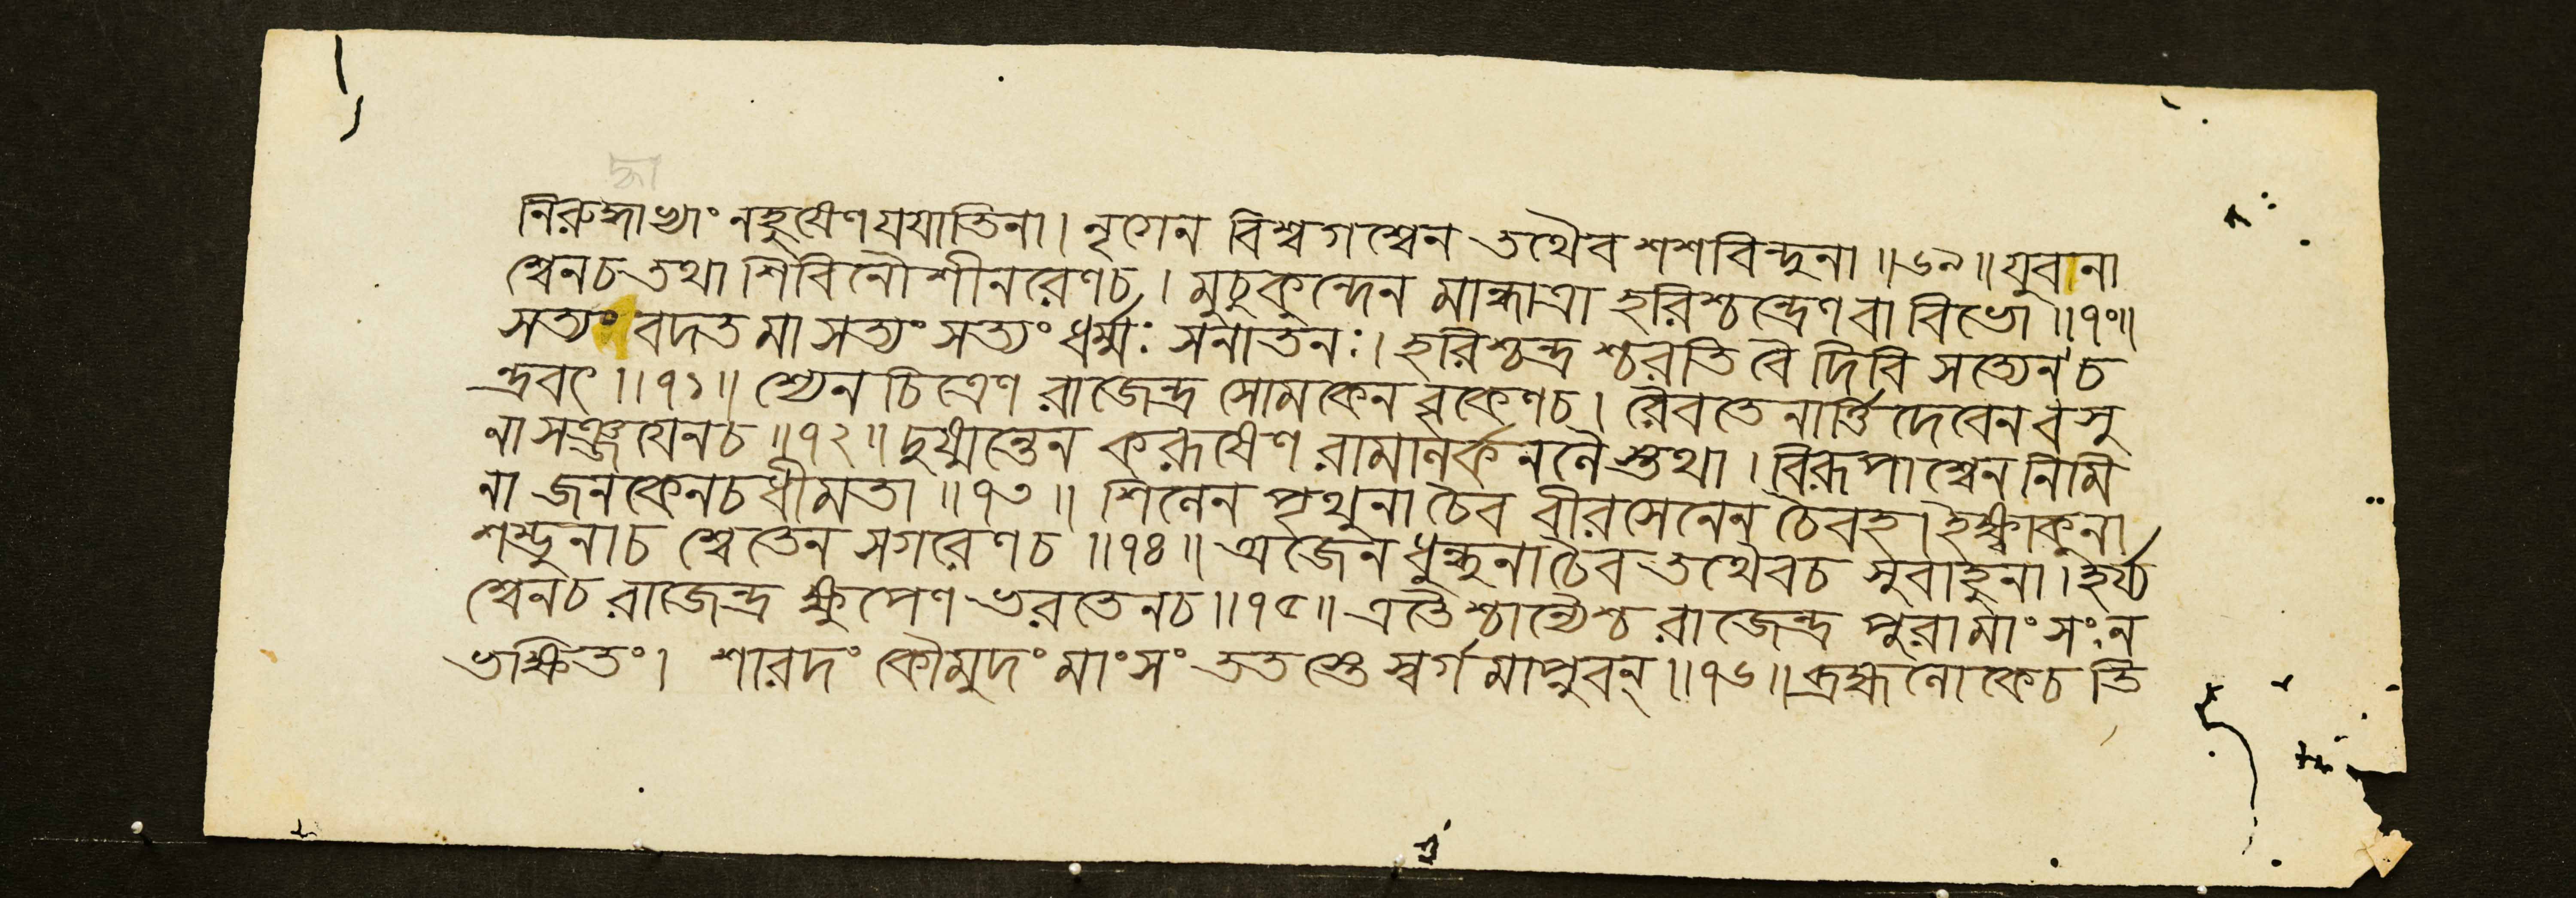 দ্ধা
নিরুদ্ধাভ্যাং নহুষেণ যযাতিনা। নৃগেন বিশ্বগশ্বেন তথৈব শশবিন্দুনা॥৬৯॥ যুবানা
শ্বেনচ তথা শিবিনৌশীনরেণচ। মুচুকুন্দেন মান্ধাত্রা হরিশ্চন্দ্রেণ বা বিভো॥৭০॥
সত্যং বদত মা সত্যং সত্যং ধর্ম্মঃ সনাতনঃ। হরিশ্চন্দ্র শ্চরতি বৈ দিবি সত্যেন চ
ন্দ্রবৎ॥৭১॥ শ্যেন চিত্রেণ রাজেন্দ্র সোমকেন বৃকেণচ। রৈবতে নার্ত্তিদেবেন বসু
না সঞ্জয়েনচ॥৭২॥ দুষ্মন্তেন করূষেণ রামানর্কনলৈ স্তথা। বিরূপাশ্বেন নিমি
না জনকেনচ ধীমতা॥৭৩॥ শিলেন পৃথুনা চৈব বীরসেনেন চৈবহ। ইক্ষ্বাকুনা
শম্ভুনাচ শ্বেতেন সগরেণচ॥৭৪॥ অজেন ধুন্ধুনা চৈব তথৈবচ সুবাহুনা। হর্য্য
শ্বেনচ রাজেন্দ্র ক্ষুপেণ ভরতেনচ॥৭৫॥ এতৈ শ্চান্যৈশ্চ রাজেন্দ্র পুরা মাংসং ন
ভক্ষিতং। শারদং কৌমুদং মাংসং ততস্তে স্বর্গ মাপ্নুবন্॥৭৬॥ ব্রহ্মলোকেচ তি